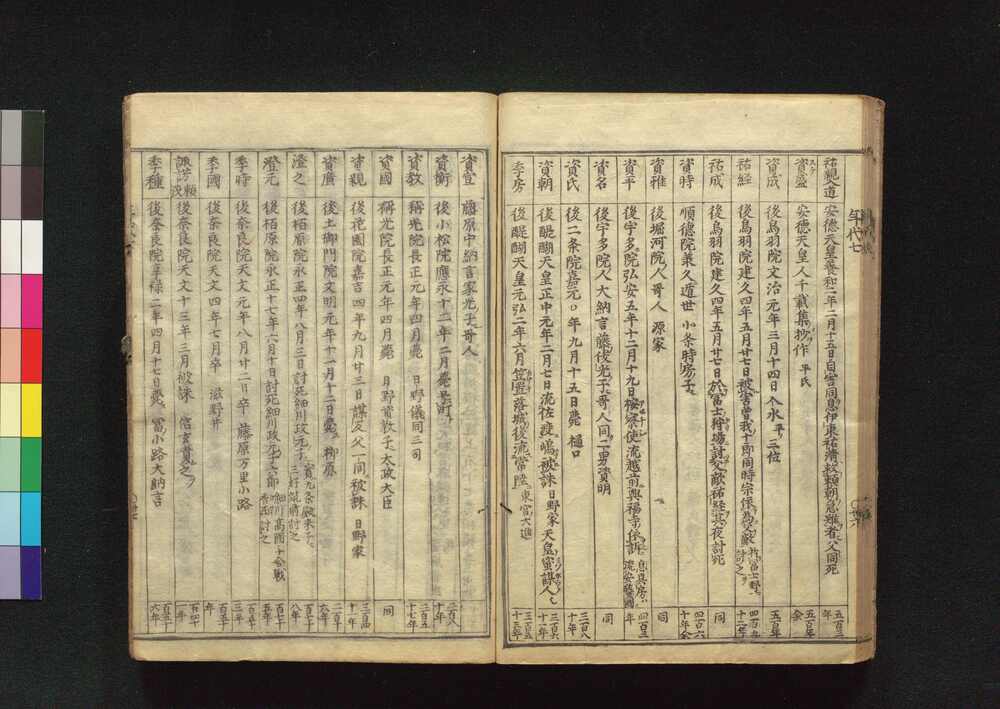 祐親入道 安徳天皇養和二年二月十五日自害同息伊東祐清救頼朝急難者父同死 五百三年
資盛 安徳天皇人千載集抄作 平氏 五百年余
資成 後鳥羽院文治元年三月十四日入水 平三位 五百年
祐経 後鳥羽院建久四年五月廿七日被害曽我十郎同時宗依為父敵於富士野討之
祐成 後鳥羽院建久四年五月廿七日於富士狩場討父敵祐経其夜討死 同
資時 順徳院承久遁世 小条時房子 四百六十年余
資雅 後堀河院人哥人 源家 同
資平 後宇多院弘安五年十二月十九日按察使流越前興福寺依訴
資名 後宇多院人大納言藤俊光子哥人同一男資明 同
資氏 後二条院嘉元〇年九月十五日薨 樋口 三百八十年
資朝 後醍醐天皇正中元年二月七日流佐渡嶋被誅日野家天皇蜜謀人也 三百六十一年
季房 後醍醐天皇元弘二年六月笠置落城後流常陸 東宮大進 三百五十三年
年代七
資宣 藤原中納言家光子哥人
資衡 後小松院應永十二年二月薨 二百八十年
資教 稱光院長正元年四月薨 日野儀同三司 二百五十七年
資國 稱光院長正元年四月薨 日野資教子太政大臣 同
資親 後花園院嘉吉四年九月廿三日謀反父一同被誅 日野家 二百四十一年
資廣 後土御門院文明元年十一月十二日薨 柳原 二百十年
澄之 後柏原院永正四年八月三日討死細川政元子 實九条殿末子 三好筑前討之 百七十八年
澄元 後柏原院永正十七年六月十日討死細川政元子 百七十五年
季時 後奈良院天文元年八月廿二日卒 藤原万里小路 百五十三年
季國 後奈良院天文四年七月卒 滋野井 百五十年
諏方頼茂 後奈良院天文十三年三月被誅 信玄責之 百四十一年
季種 後奈良院享禄二年四月十七日薨 冨小路大納言 百五十六年